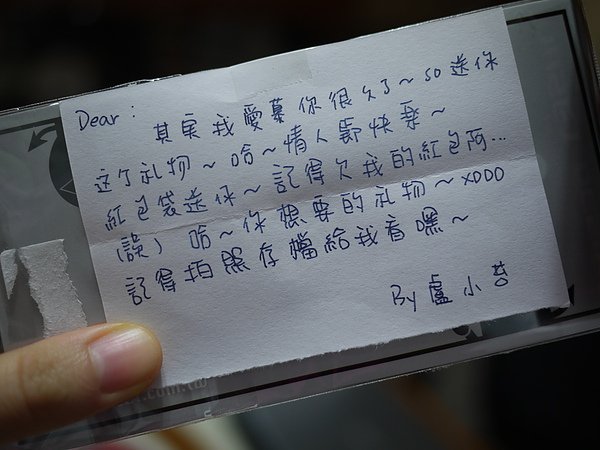 Dear：
其実我愛慕你很久了～so送你
这个礼物～哈～情人節快樂～
紅包袋送你～記得欠我的紅包阿...
(誤) 哈～你想要的礼物～XDDD
記得拍照存檔給我看嘿～
By盧小苔
.com.tw